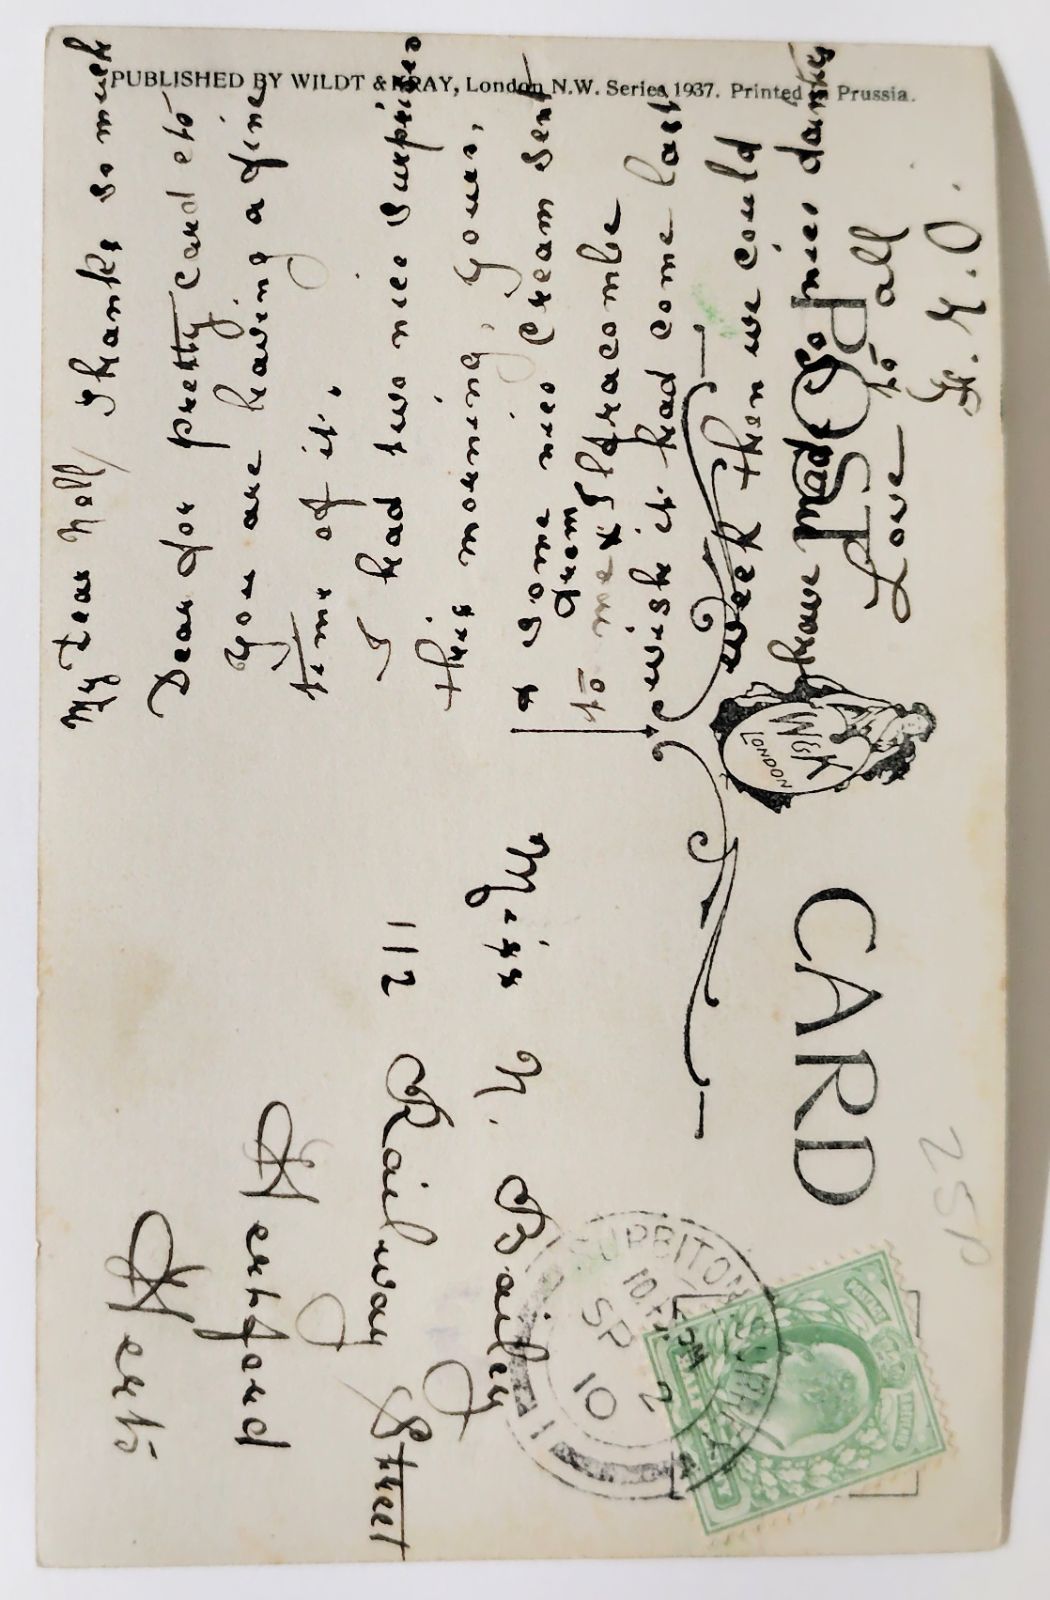 PUBLISHED BY WILDT & KRAY, London N.W. Series 1937. Printed in Prussia.
POST CARD
W&K
LONDON
My Dear Nell/ Thanks so much
Dear for pretty card etc
you are having a fine
time of it.
I had two nice surprises
this morning, yours,
& some nice cream sent
to me from Ilfracombe
wish it had come last
week then we could
have had so nice
Love to all
Miss N. Bailey
112 Railway Street
Hertford
Herts
SURBITON SURREY
SP 2
10
25P